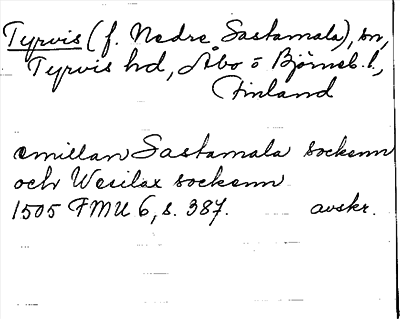 Tyrvis (f. Nedre Sastamala), sn,
Tyrvis hd, Åbo o Björneb. l.,
Finland
emillan Sastamala sockenn
och Wesilax sockenn
1505 FMU 6, s. 387. avskr.